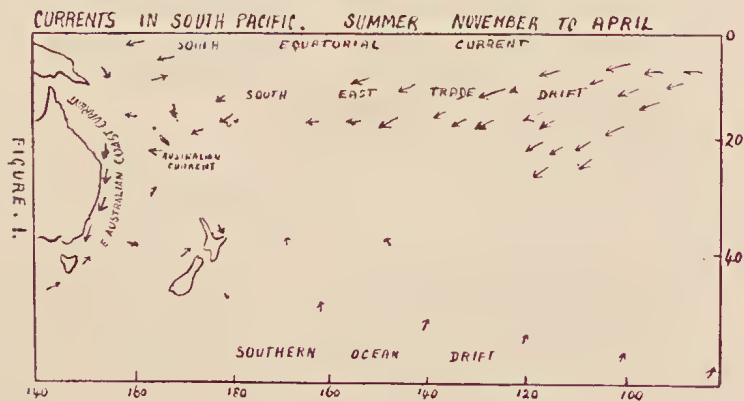 CURRENTS IN SOUTH PACIFIC. SUMMER NOVEMBER TO APRIL
SOUTH EQUATORIAL CURRENT
0
SOUTH EAST TRADE DRIFT
E AUSTRALIAN COAST CURRENT
20
AUSTRALIAN
CURRENT
FIGURE. 1.
40
SOUTHERN OCEAN DRIFT
140 160 180 160 140 120 100